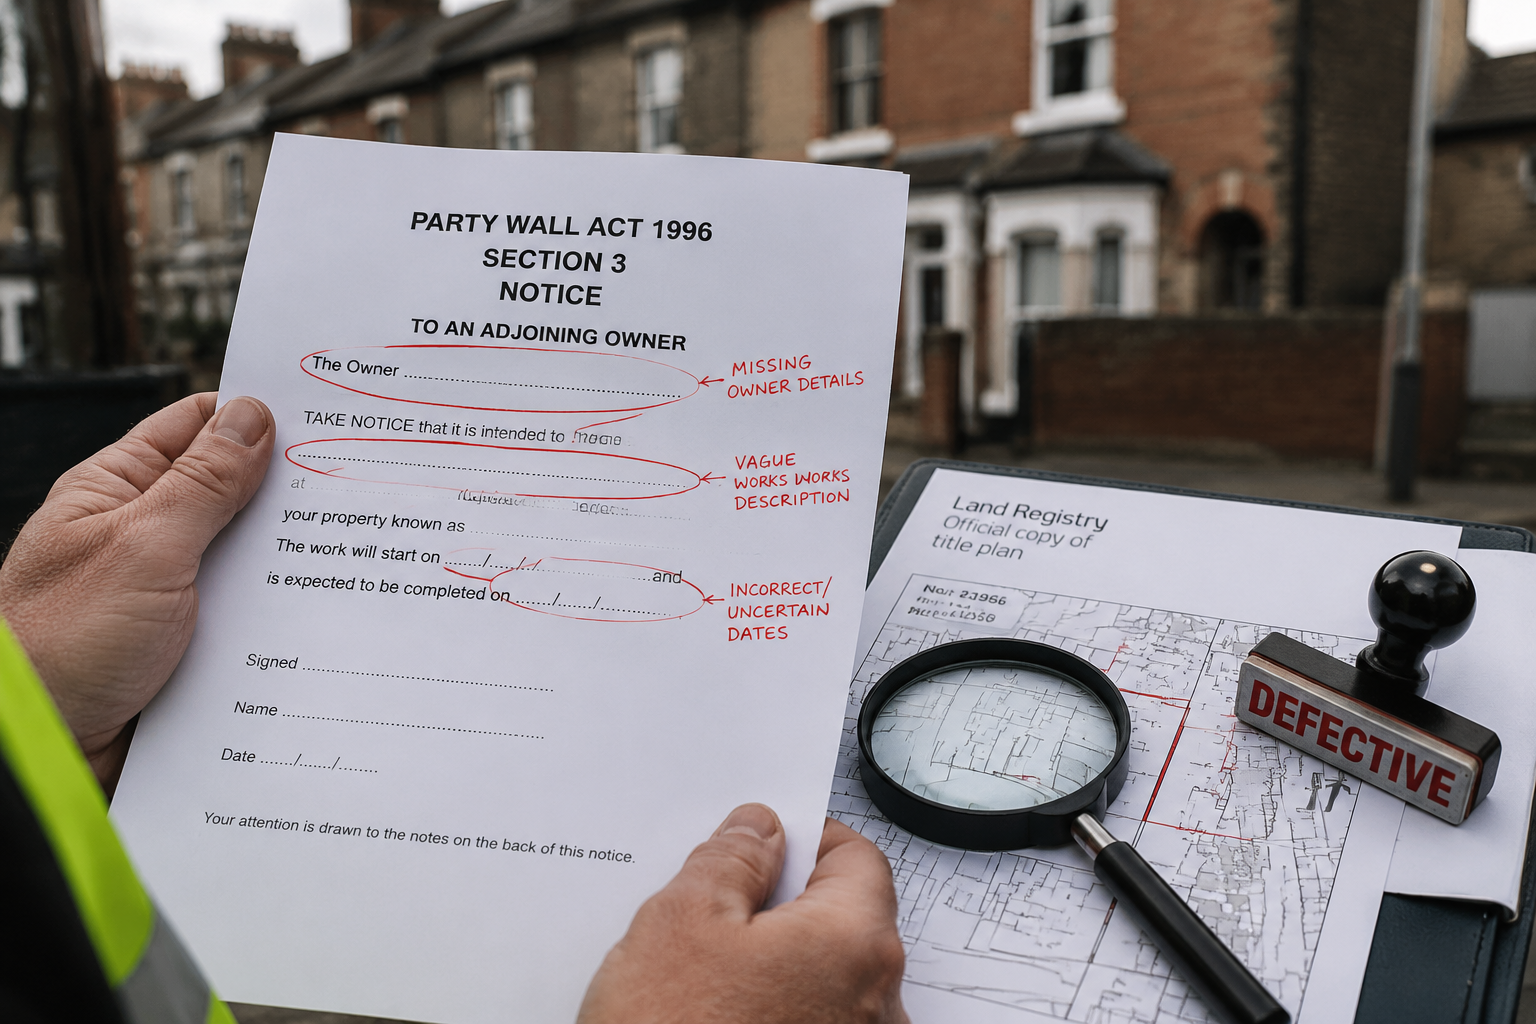 PARTY WALL ACT 1996
SECTION 3
NOTICE
TO AN ADJOINING OWNER
The Owner
MISSING
OWNER DETAILS
TAKE NOTICE that it is intended to
VAGUE
WORKS WORKS
DESCRIPTION
at
your property known as
The work will start on ....../....../ and
is expected to be completed on ....../....../
INCORRECT/
UNCERTAIN
DATES
Signed
Name
Date ....../....../
Your attention is drawn to the notes on the back of this notice.
Land Registry
Official copy of
title plan
DEFECTIVE